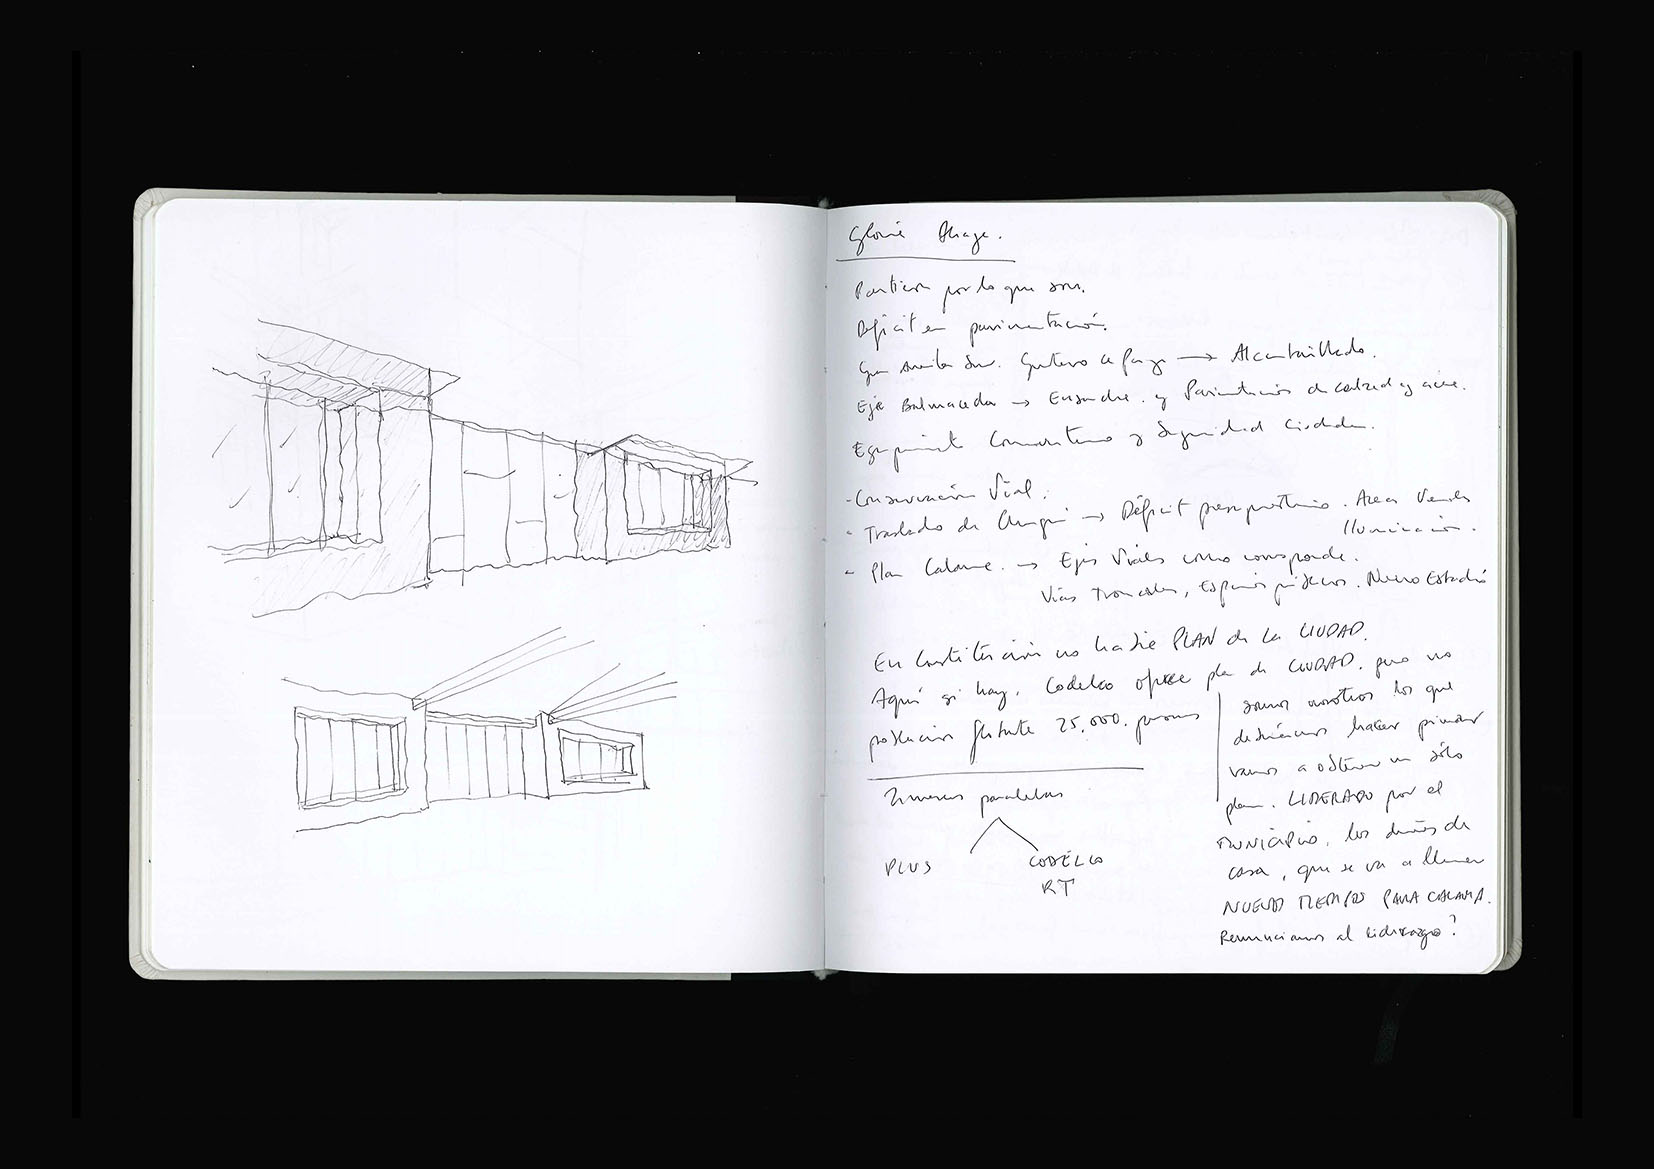 Partieron por lo que son.
Déficit en pavimentación.
Gran Avenida Sur. → Alcantarillado.
Eje Balmaceda → Ensanche. y Pavimentación de calzada y
Equipamiento Comunitario y Seguridad Ciudadana.
- Conservación Vial.
- Traslado de Chuqui → Déficit presupuestario. Areas Verdes
Iluminación.
- Plan Calama. → Ejes Viales como corresponde.
Vías Troncales, Espacios públicos. Nuevo Estadio
En Constitución no había PLAN de la CIUDAD.
Aquí si hay. Codelco ofrece plan de CIUDAD. pero no
población flotante 25.000. personas
somos nosotros los que
debiéramos hacer primar
vamos a obtener un sólo
plan. LIDERADO por el
MUNICIPIO. los dueños de
casa, que se va a llamar
NUEVOS TIEMPOS PARA CALAMA.
Renunciamos al liderazgo?
2 mesas paralelas
PLUS CODELCO
RT